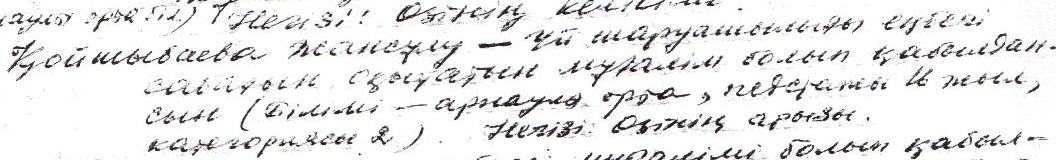 арнаулы орта біл.) Негізі: Өзінің келісімі
Қойшыбаева Жансұлу – үй шаруашылығы еңбегі
сабағын оқытатын мұғалім болып қабылдан-
сын (Білімі – арнаулы орта, педстажы 16 жыл,
категориясы 2). Негізі: Өзінің арызы.
мұғалімі болып қабыл-